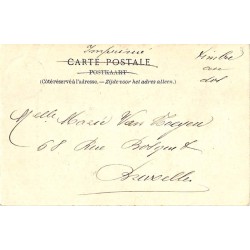 Imprimé
Timbre
au
dos
CARTE POSTALE
POSTKAART
(Côté réservé à l'adresse. — Zijde voor het adres alleen.)
Melle Marie Van
68 Rue
Bruxelles